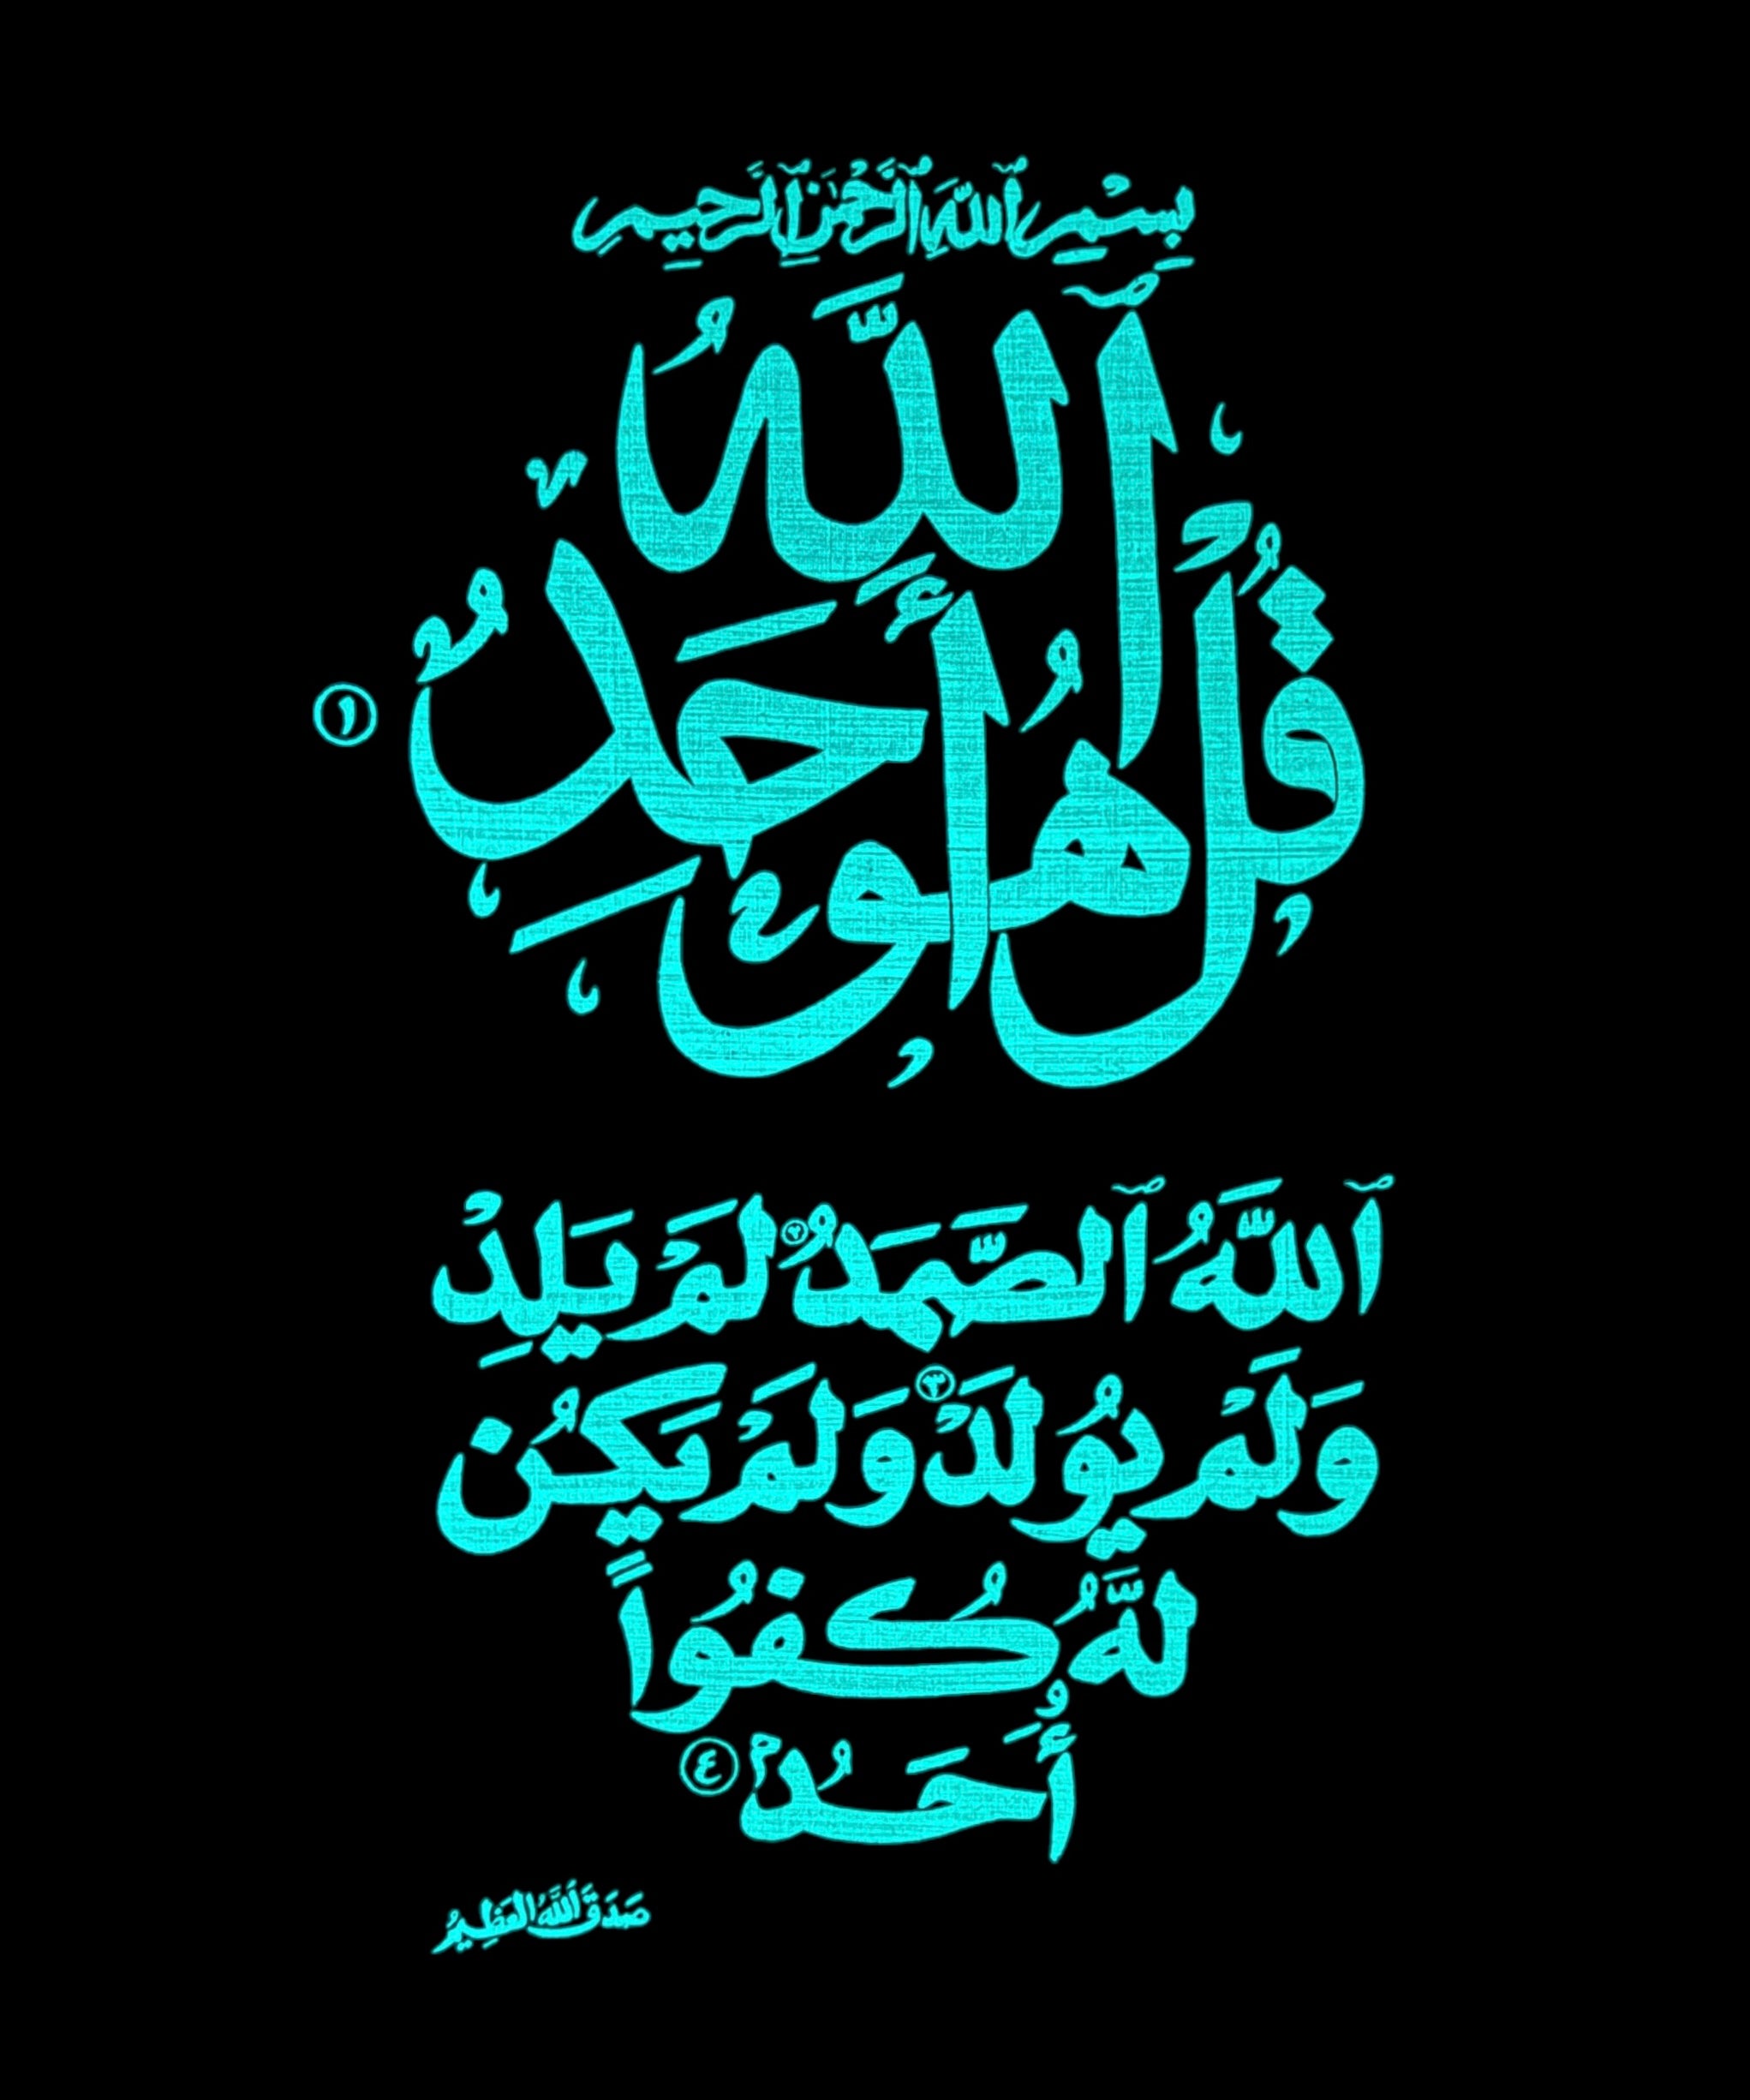 بِسْمِ ٱللَّهِ ٱلرَّحْمَٰنِ ٱلرَّحِيمِ
قُلْ هُوَ ٱللَّهُ أَحَدٌ ①
ٱللَّهُ ٱلصَّمَدُ ② لَمْ يَلِدْ
وَلَمْ يُولَدْ ③ وَلَمْ يَكُن
لَّهُ كُفُوًا
أَحَدٌ ④
صَدَقَ اللَّهُ الْعَظِيمُ